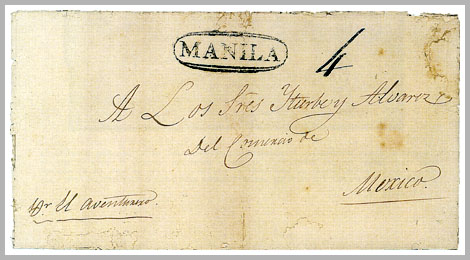 MANILA
4
A Los Sres Yturbe y Alvarez
Del Comercio de
Mexico.
Pr El aventurero.